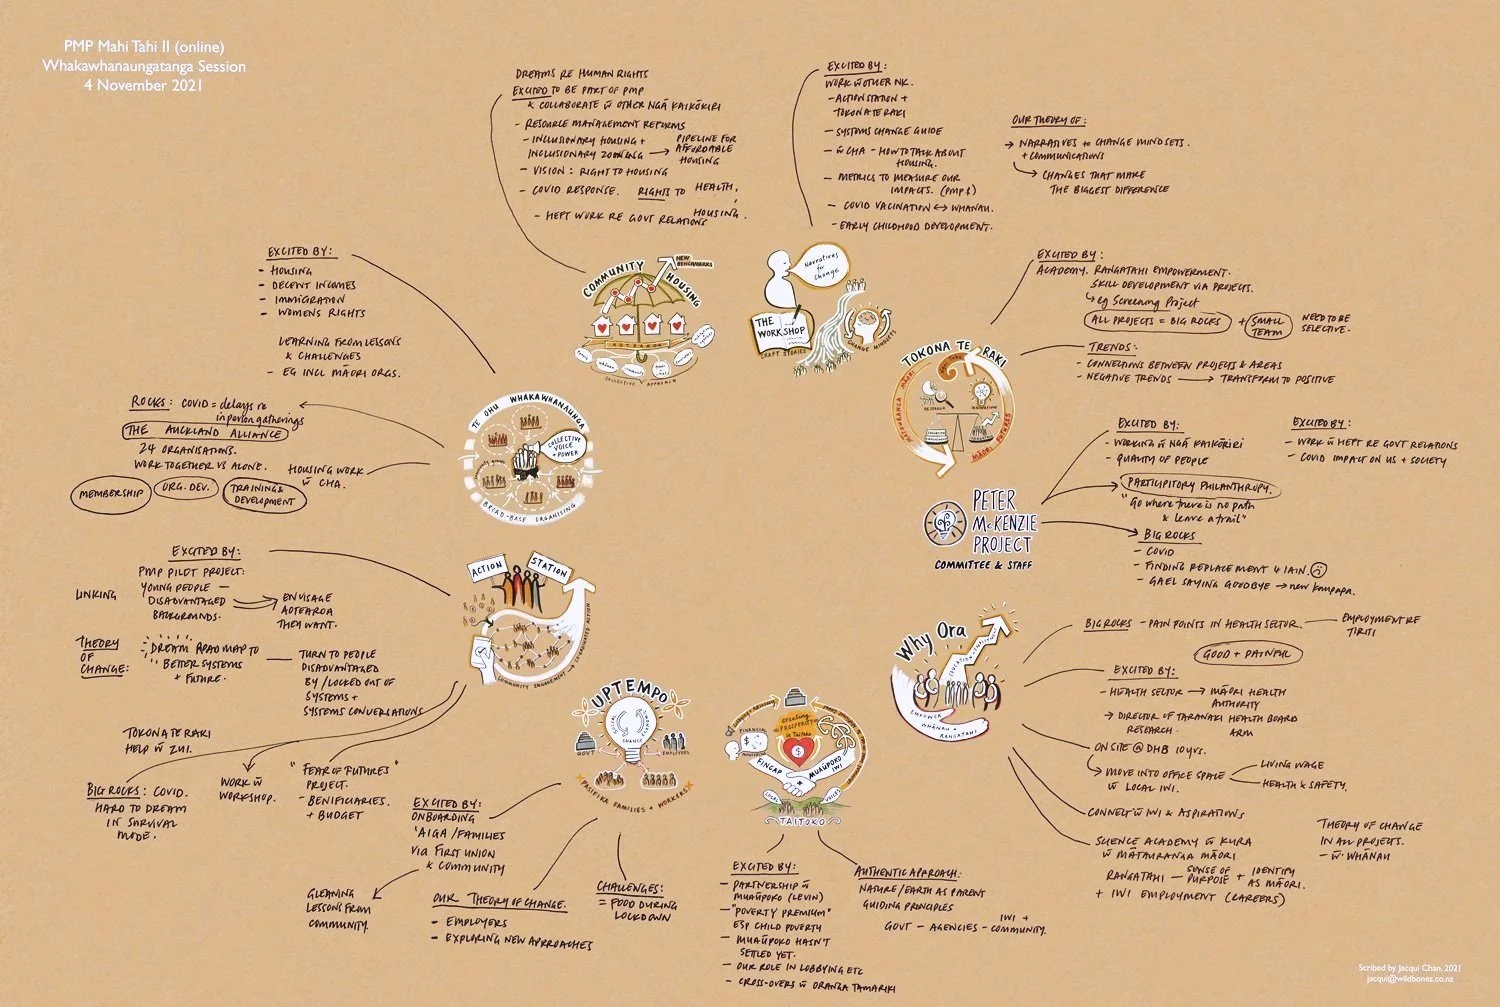 PMP Mahi Tahi II (online)
Whakawhanaungatanga Session
4 November 2021
DREAMS RE HUMAN RIGHTS
EXCITED TO BE PART OF PMP
& COLLABORATE W̄ OTHER NGĀ KAIKŌKIRI
- RESOURCE MANAGEMENT REFORMS
- INCLUSIONARY HOUSING +
INCLUSIONARY ZONING → PIPELINE FOR
AFFORDABLE
HOUSING
- VISION: RIGHT TO HOUSING
- COVID RESPONSE. RIGHTS TO HEALTH,
HOUSING.
- HEFT WORK RE GOVT RELATIONS
COMMUNITY HOUSING
NEW BENCHMARKS
AOTEAROA
COLLECTIVE APPROACH
EXCITED BY:
WORK W̄ OTHER NK.
- ACTIONSTATION +
TOKONA TE RAKI
- SYSTEMS CHANGE GUIDE
- W̄ CHA - HOW TO TALK ABOUT
HOUSING.
- METRICS TO MEASURE OUR
IMPACTS. (PMP &)
- COVID VACINATION ↔ WHĀNAU.
- EARLY CHILDHOOD DEVELOPMENT.
OUR THEORY OF:
→ NARRATIVES to CHANGE MINDSETS.
+ COMMUNICATIONS
→ CHANGES THAT MAKE
THE BIGGEST DIFFERENCE
Narratives for Change
THE WORKSHOP
CRAFT STORIES
CHANGE MINDSETS
EXCITED BY:
ACADEMY. RANGATAHI EMPOWERMENT.
SKILL DEVELOPMENT VIA PROJECTS.
eg Screening Project
ALL PROJECTS = BIG ROCKS + SMALL TEAM NEED TO BE
SELECTIVE.
- TRENDS:
- CONNECTIONS BETWEEN PROJECTS & AREAS
- NEGATIVE TRENDS → TRANSFORM TO POSITIVE
TOKONA TE RAKI
MĀTAURANGA MĀORI
RESEARCH
INNOVATION
MĀORI FUTURES
EXCITED BY:
- WORKING W̄ NGĀ KAIKŌKIRI
- QUALITY OF PEOPLE
EXCITED BY:
- WORK W̄ HEFT RE GOVT RELATIONS
- COVID IMPACT ON US + SOCIETY
PARTICIPITORY PHILANTHROPY.
"Go where there is no path
& leave a trail"
BIG ROCKS
- COVID
- FINDING REPLACEMENT 4 IAIN.
- GAEL SAYING GOODBYE → new kaupapa.
PETER
McKENZIE
PROJECT
COMMITTEE & STAFF
BIG ROCKS - PAIN POINTS IN HEALTH SECTOR. — EMPLOYMENT RE
TIRITI
GOOD + PAINFUL
EXCITED BY:
- HEALTH SECTOR → MĀORI HEALTH
AUTHORITY
→ DIRECTOR OF TARANAKI HEALTH BOARD
RESEARCH ARM
ON SITE @ DHB 10 yrs.
→ MOVE INTO OFFICE SPACE
W̄ LOCAL IWI.
LIVING WAGE
HEALTH & SAFETY.
CONNECT W̄ IWI & ASPIRATIONS
SCIENCE ACADEMY W̄ KURA
W̄ MĀTAURANGA MĀORI
RANGATAHI - SENSE OF
PURPOSE + IDENTIFY
AS MĀORI.
+ IWI EMPLOYMENT (CAREERS)
THEORY OF CHANGE
IN ALL PROJECTS.
- W̄ WHĀNAU
Why Ora
EDUCATION + EMPLOYMENT
EMPOWER
WHĀNAU +
RANGATAHI
EXCITED BY:
- HOUSING
- DECENT INCOMES
- IMMIGRATION
- WOMENS RIGHTS
LEARNING FROM LESSONS
& CHALLENGES
- EG INCL MĀORI ORGS.
ROCKS: COVID = delays re
in person gatherings
THE AUCKLAND ALLIANCE
24 ORGANISATIONS.
WORK TOGETHER VS ALONE.
HOUSING WORK
W̄ CHA.
MEMBERSHIP
ORG. DEV.
TRAINING &
DEVELOPMENT
TE OHU WHAKAWHANAUNGA
COLLECTIVE
VOICE
+ POWER
BROAD-BASE ORGANISING
EXCITED BY:
PMP PILOT PROJECT:
LINKING YOUNG PEOPLE —
DISADVANTAGED
BACKGROUNDS.
ENVISAGE
AOTEAROA
THEY WANT.
THEORY
OF
CHANGE:
DREAM ROADMAP TO
BETTER SYSTEMS
+ FUTURE.
TURN TO PEOPLE
DISADVANTAGED
BY / LOCKED OUT OF
SYSTEMS +
SYSTEMS CONVERSATIONS
TOKONA TE RAKI
HELP W̄ ZUI.
BIG ROCKS: COVID.
HARD TO DREAM
IN SURVIVAL
MODE.
WORK W̄
WORKSHOP.
"FEAR OF FUTURES"
PROJECT.
- BENIFICIARIES.
+ BUDGET
ACTION STATION
COMMUNITY ENGAGEMENT → CO-ORDINATED ACTION
EXCITED BY:
ONBOARDING
'AIGA / FAMILIES
VIA FIRST UNION
& COMMUNITY
GLEANING
LESSONS FROM
COMMUNITY.
OUR THEORY OF CHANGE.
- EMPLOYERS
- EXPLORING NEW APPROACHES
CHALLENGES:
= FOOD DURING
LOCKDOWN
UPTEMPO
GOVT
EMPLOYERS
PASIFIKA FAMILIES + WORKERS
EXCITED BY:
- PARTNERSHIP W̄
MUAŪPOKO (LEVIN)
- "POVERTY PREMIUM"
ESP CHILD POVERTY
- MUAŪPOKO HASN'T
SETTLED YET.
- OUR ROLE IN LOBBYING ETC
- CROSS-OVERS W̄ ORANGA TAMARIKI
AUTHENTIC APPROACH:
NATURE/EARTH AS PARENT
GUIDING PRINCIPLES
GOVT - AGENCIES - IWI +
COMMUNITY.
creating
PROSPERITY
in Taitoko
FINANCIAL
MENTORING
FINCAP
+
MUAŪPOKO
IWI
LOCAL VOICES
TAITOKO
Scribed by Jacqui Chan, 2021
jacqui@wildbones.co.nz